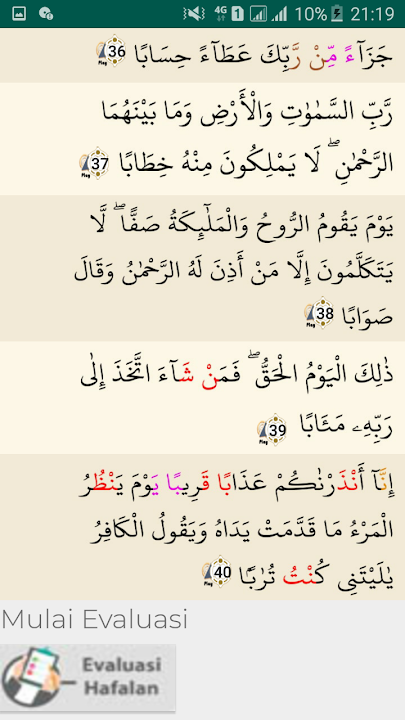 4G 1 10% 21:19
جَزَآءً مِّنْ رَّبِّكَ عَطَآءً حِسَابًا 36
رَّبِّ السَّمٰوٰتِ وَالْأَرْضِ وَمَا بَيْنَهُمَا
الرَّحْمٰنِ ۖ لَا يَمْلِكُونَ مِنْهُ خِطَابًا 37
يَوْمَ يَقُومُ الرُّوحُ وَالْمَلٰٓئِكَةُ صَفًّا ۖ لَّا
يَتَكَلَّمُونَ إِلَّا مَنْ أَذِنَ لَهُ الرَّحْمٰنُ وَقَالَ
صَوَابًا 38
ذٰلِكَ الْيَوْمُ الْحَقُّ ۖ فَمَنْ شَآءَ اتَّخَذَ إِلٰى
رَبِّهِۦ مَـَٔابًا 39
إِنَّآ أَنْذَرْنٰكُمْ عَذَابًا قَرِيبًا يَوْمَ يَنْظُرُ
الْمَرْءُ مَا قَدَّمَتْ يَدَاهُ وَيَقُولُ الْكَافِرُ
يٰلَيْتَنِى كُنْتُ تُرٰبًۢا 40
Mulai Evaluasi
Evaluasi
Hafalan